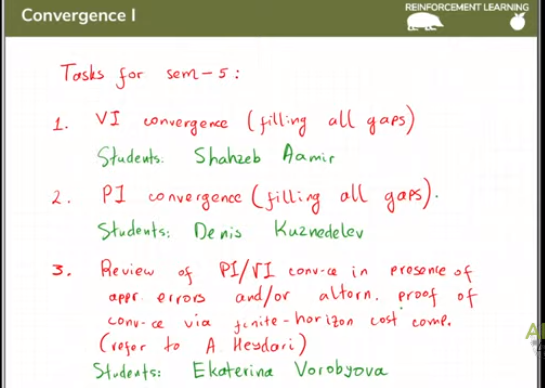 Convergence I
REINFORCEMENT LEARNING
Tasks for sem-5:
1. VI convergence (filling all gaps)
Students: Shahzeb Aamir
2. PI convergence (filling all gaps).
Students: Denis Kuznedelev
3. Review of PI/VI conv-ce in presence of
appr. errors and/or altern. proof of
conv-ce via finite-horizon cost comp.
(refer to A Heydari)
Students: Ekaterina Vorobyova